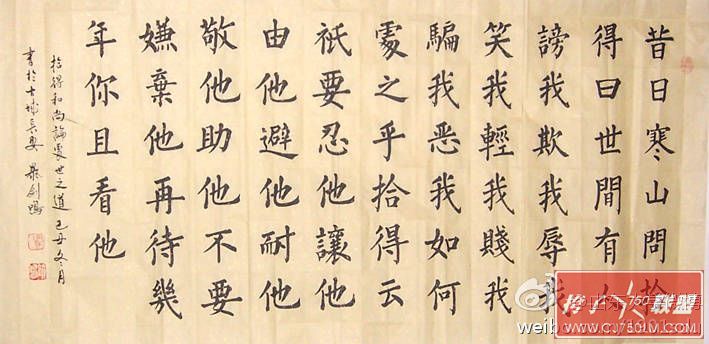 昔日寒山問拾
得曰世間有人
謗我欺我辱我
笑我輕我賤我
騙我恶我如何
處之乎拾得云
祇要忍他讓他
由他避他耐他
敬他助他不要
嫌棄他再待幾
年你且看他
拾得和尚論處世之道己丑冬月
書於古城長安
750
联盟
www.c750LM.com